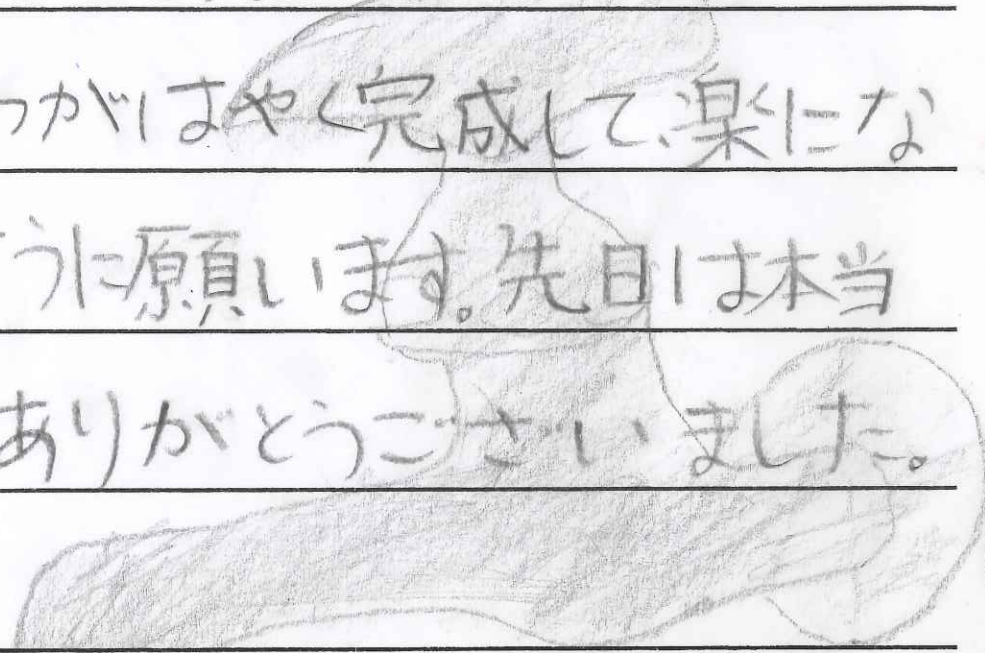 つがはやく完成して、楽にな
うに願います。先日は本当
ありがとうございました。